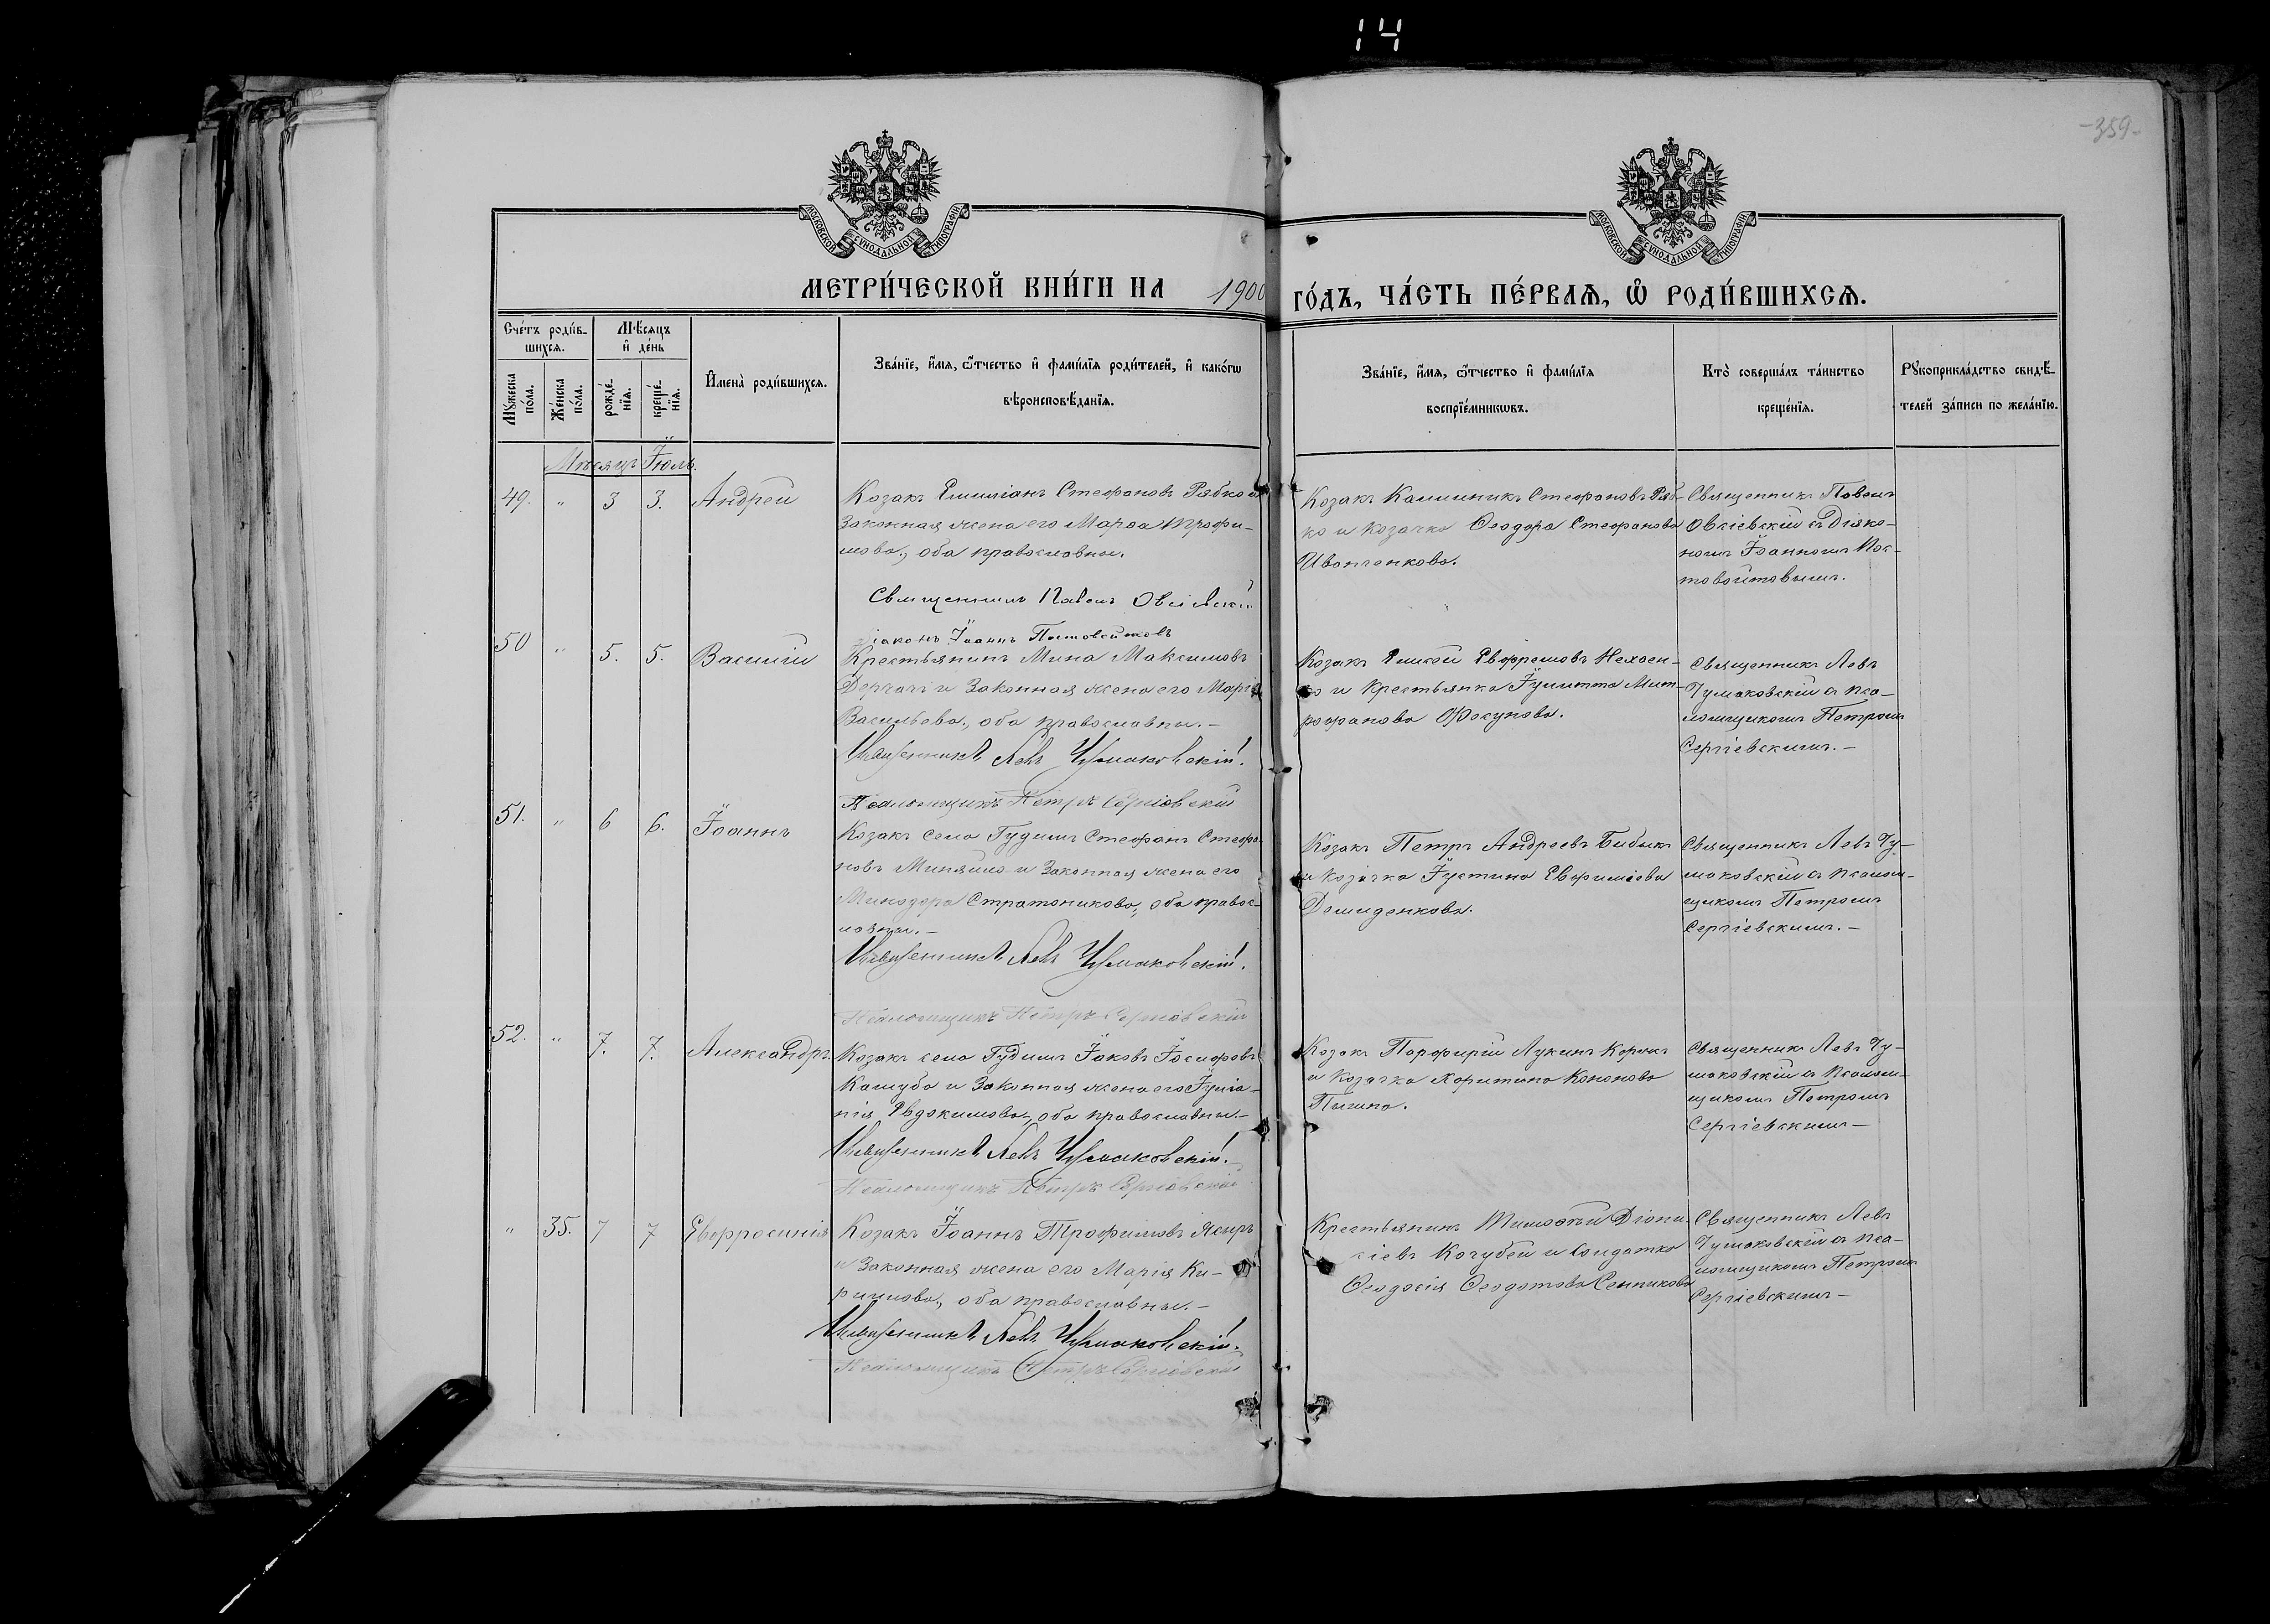 14
-359-
МОСКОВСКОЙ СѴНОДАЛЬНОЙ ТИПОГРАФІИ
МОСКОВСКОЙ СѴНОДАЛЬНОЙ ТИПОГРАФІИ
МЕТРИ́ЧЕСКОЙ КНИ́ГИ НА 1900 ГО́ДЪ, ЧА́СТЬ ПЕ́РВАЯ, Ѿ РОДИ́ВШИХСЯ.
Сче́тъ роди́в-
шихся.
Мѣ́сяцъ
и҆ де́нь
Мꙋ́жеска по́ла.
Же́нска по́ла.
рожде́-
нїя.
креще́-
нїя.
И҆мена̀ роди́вшихся.
Зва́нїе, и҆́мя, ѻ҆́тчество и҆ фами́лїя роди́телей, и҆ како́гѡ
вѣроисповѣ́данїя.
Зва́нїе, и҆́мя, ѻ҆́тчество и҆ фами́лїя
воспрїе́мникѡвъ.
Кто̀ соверша́лъ та́инство
креще́нїя.
Рꙋкоприкла́дство свидѣ́-
телей за́писи по жела́нїю.
Мѣсяцъ Їюль.
49. " 3 3. Андрей
Козакъ Емиліанъ Стефановъ Рябко и
Законная жена его Марѳа Трофи-
мова, оба православны.
Священникъ Павелъ Овсіевскій
Діаконъ Їоаннъ Постовойтовъ
Козакъ Каллиникъ Стефановъ Ряб-
ко и козачка Ѳеодора Стефанова
Иванченкова.
Священникъ Павелъ
Овсіевскій съ Діако-
номъ Їоанномъ Пос-
товойтовымъ.
50 " 5. 5. Василій
Крестьянинъ Мина Максимовъ
Деркачъ и Законная жена его Марія
Васильева, оба православны.-
Священникъ Левъ Чумаковскій.
Псаломщикъ Петръ Сергіевскій
Козакъ Елисей Ефремовъ Нехаен-
ко и Крестьянка Їулитта Мит-
рофанова Фокунова.
Священникъ Левъ
Чумаковскій съ пса-
ломщикомъ Петромъ
Сергіевскимъ.-
51. " 6 6. Їоаннъ
Козакъ села Гудимъ Стефанъ Стефа-
новъ Миняйло и Законная жена его
Минодора Стратоникова, оба правос-
лавны.-
Священникъ Левъ Чумаковскій.
Псаломщикъ Петръ Сергіевскій
Козакъ Петръ Андреевъ Бибикъ
и козачка Їустина Евфиміева
Демиденкова.
Священникъ Левъ Чу-
маковскій съ псалом-
щикомъ Петромъ
Сергіевскимъ.-
52. " 7. 7. Александръ.
Козакъ села Гудимъ Їаковъ Їосифовъ
Кашуба и Законная жена его Їулiа-
нія Евдокимова, оба православны.-
Священникъ Левъ Чумаковскій.
Псаломщикъ Петръ Сергіевскій
Козакъ Порфирій Лукинъ Коракъ
и козачка Харитина Кононова
Пигина.
Священникъ Левъ Чу-
маковскій съ псалом-
щикомъ Петромъ
Сергіевскимъ-
" 35. 7 7 Евфросинія
Козакъ Їоаннъ Трофимовъ Ясыръ
и Законная жена его Марія Ки-
риллова, оба православны.-
Священникъ Левъ Чумаковскій.
Псаломщикъ Петръ Сергіевскій
Крестьянинъ Тимоѳей Діони-
сіевъ Кочубей и Солдатка
Ѳеодосія Ѳеодотова Сенникова
Священникъ Левъ
Чумаковскій съ пса-
ломщикомъ Петромъ
Сергіевскимъ-